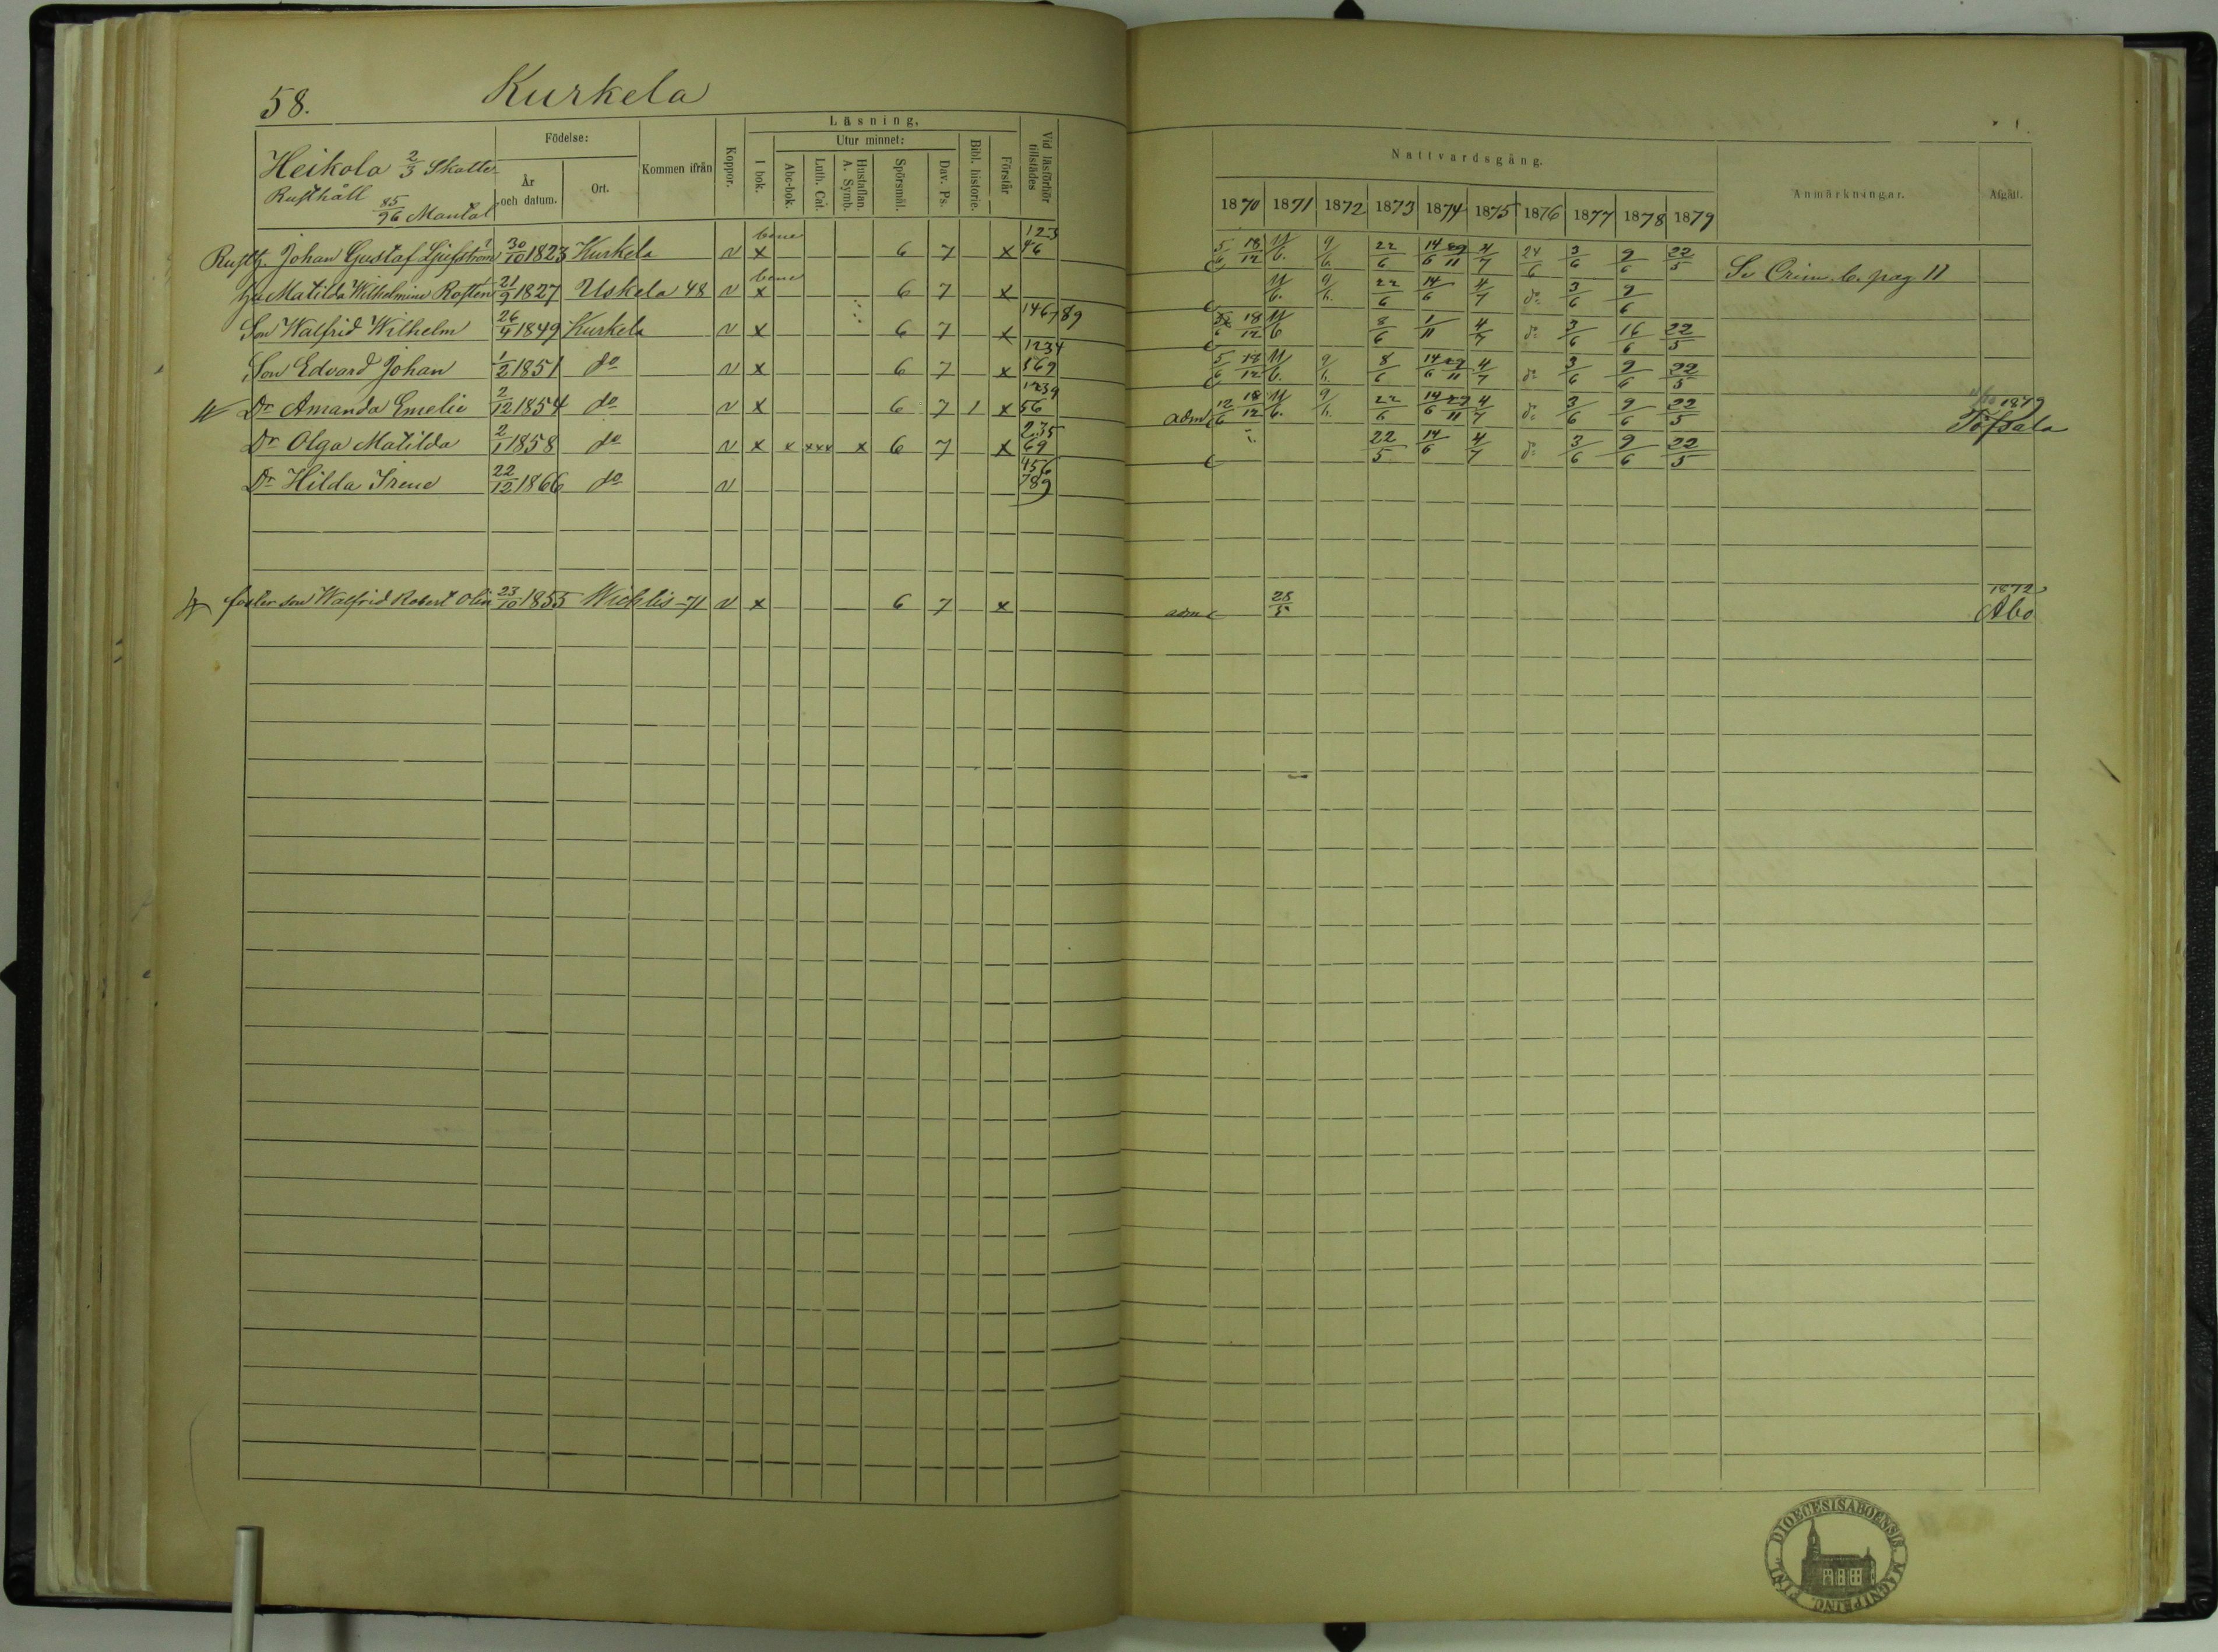 58. Kurkela
Heikola 2/3 Skatte
Rusthåll 85/96 Mantal
Födelse:
År och datum.
Ort.
Kommen ifrån
Koppor.
Läsning,
I bok.
Utur minnet:
Abc-bok.
Luth. Cat.
Hustaflan. A. Symb.
Spörsmål.
Dav. Ps.
Bibl. historie.
Förstår
Vid läsförhör tillstädes
Nattvardsgång.
1870 1871 1872 1873 1874 1875 1876 1877 1878 1879
Anmärkningar.
Afgått.
Rusth. Johan Gustaf 30/10 1823 Kurkela v bene x 6 7 x 123 46 5/6 18/12 11/6. 9/6. 22/6 14/6 4/7 24/6 3/6 9/6 22/5 Se Crim. b. pag 11
Hu Matilda Wilhelmina 21/9 1827 Uskela 48 v bene x 6 7 x 11/6. 9/6. 22/6 14/6 4/7 do 3/6 9/6
Son Walfrid Wilhelm 26/4 1849 Kurkela v x 6 7 x 146789 18/12 11/6 8/6 1/11 4/7 do 3/6 16/6 22/5
Son Edvard Johan 1/2 1851 do v x 6 7 x 1234 569 5/6 18/12 11/6. 9/6. 8/6 14/6 29/11 4/7 do 3/6 9/6 22/5
Dr Amanda Emelie 2/12 1854 do v x 6 7 1 x 1239 56 adm 12/6 18/12 11/6. 9/6. 22/6 14/6 29/11 4/7 do 3/6 9/6 22/5 1879 Töfsala
Dr Olga Matilda 2/1 1858 do v x x xxx x 6 7 x 235 69 22/5 14/6 4/7 do 3/6 9/6 22/5
Dr Hilda Irene 22/12 1866 do v 456 789
foster son Walfrid Robert Olin 23/10 1855 Wichtis -71 v x 6 7 x adm 28/5 1872 Åbo
DIOECESIS ABOENSIS. MAGNI PRINC. FINL.